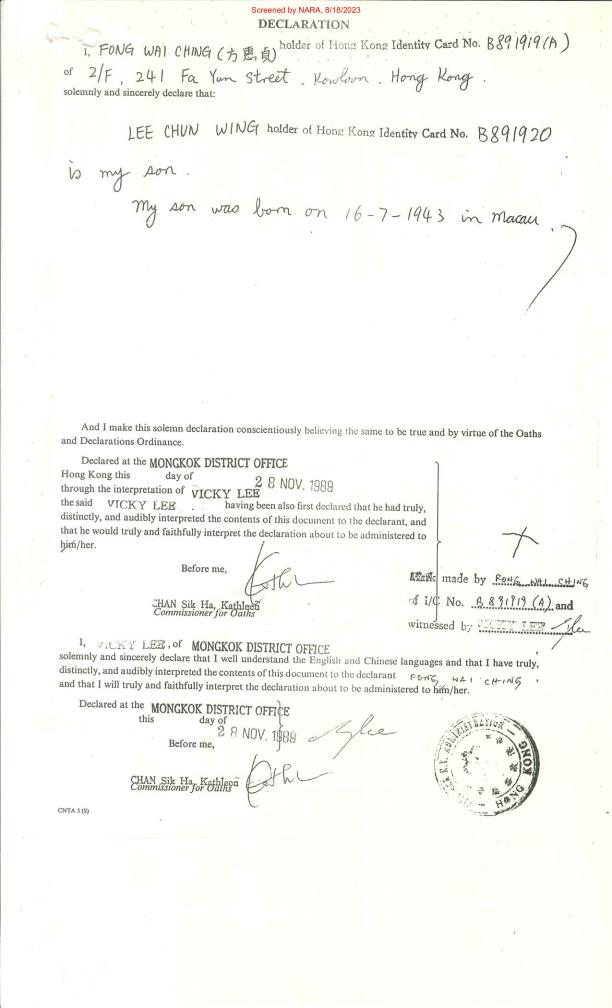 Screened by NARA, 8/18/2023
DECLARATION
I, FONG WAI CHING (方惠貞) holder of Hong Kong Identity Card No. B891919(A)
of 2/F, 241 Fa Yun Street, Kowloon, Hong Kong.
solemnly and sincerely declare that:
LEE CHUN WING holder of Hong Kong Identity Card No. B891920
is my son.
My son was born on 16-7-1943 in Macau.
And I make this solemn declaration conscientiously believing the same to be true and by virtue of the Oaths
and Declarations Ordinance.
Declared at the MONGKOK DISTRICT OFFICE
Hong Kong this day of 28 NOV. 1989
through the interpretation of VICKY LEE
the said VICKY LEE having been also first declared that he had truly,
distinctly, and audibly interpreted the contents of this document to the declarant, and
that he would truly and faithfully interpret the declaration about to be administered to
him/her.
Before me,
CHAN Sik Ha, Kathleen
Commissioner for Oaths
made by FONG WAI CHING
of I/C No. B891919(A) and
witnessed by VICKY LEE
I, VICKY LEE, of MONGKOK DISTRICT OFFICE
solemnly and sincerely declare that I well understand the English and Chinese languages and that I have truly,
distinctly, and audibly interpreted the contents of this document to the declarant FONG WAI CHING,
and that I will truly and faithfully interpret the declaration about to be administered to him/her.
Declared at the MONGKOK DISTRICT OFFICE
this day of
28 NOV. 1989
Before me,
CHAN Sik Ha, Kathleen
Commissioner for Oaths
N.T. ADMINISTRATION
HONG KONG
CNTA 5 (S)